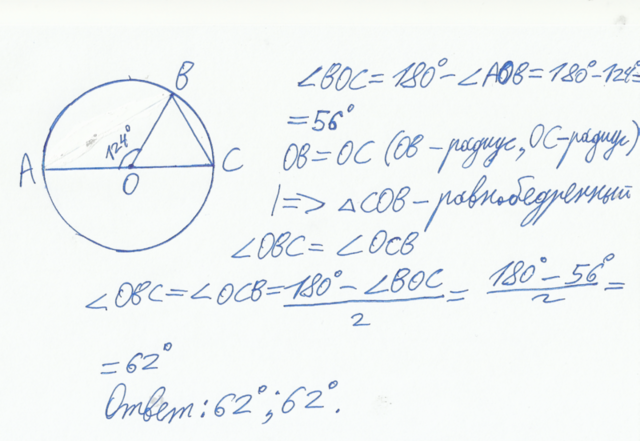 B
124°
A
O
C
∠BOC = 180° - ∠AOB = 180° - 124° =
= 56°
OB = OC (OB - радиус, OC - радиус)
|=> △COB - равнобедренный
∠OBC = ∠OCB
∠OBC = ∠OCB = (180° - ∠BOC)/2 = (180° - 56°)/2 =
= 62°
Ответ: 62°; 62°.